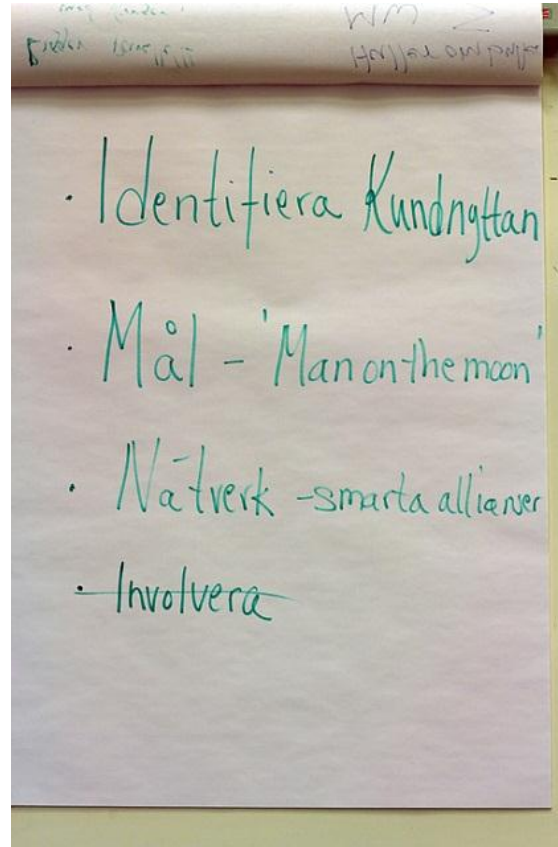 · Identifiera Kundnyttan
· Mål - 'Man on the moon'
· Nätverk - smarta allianser
· Involvera